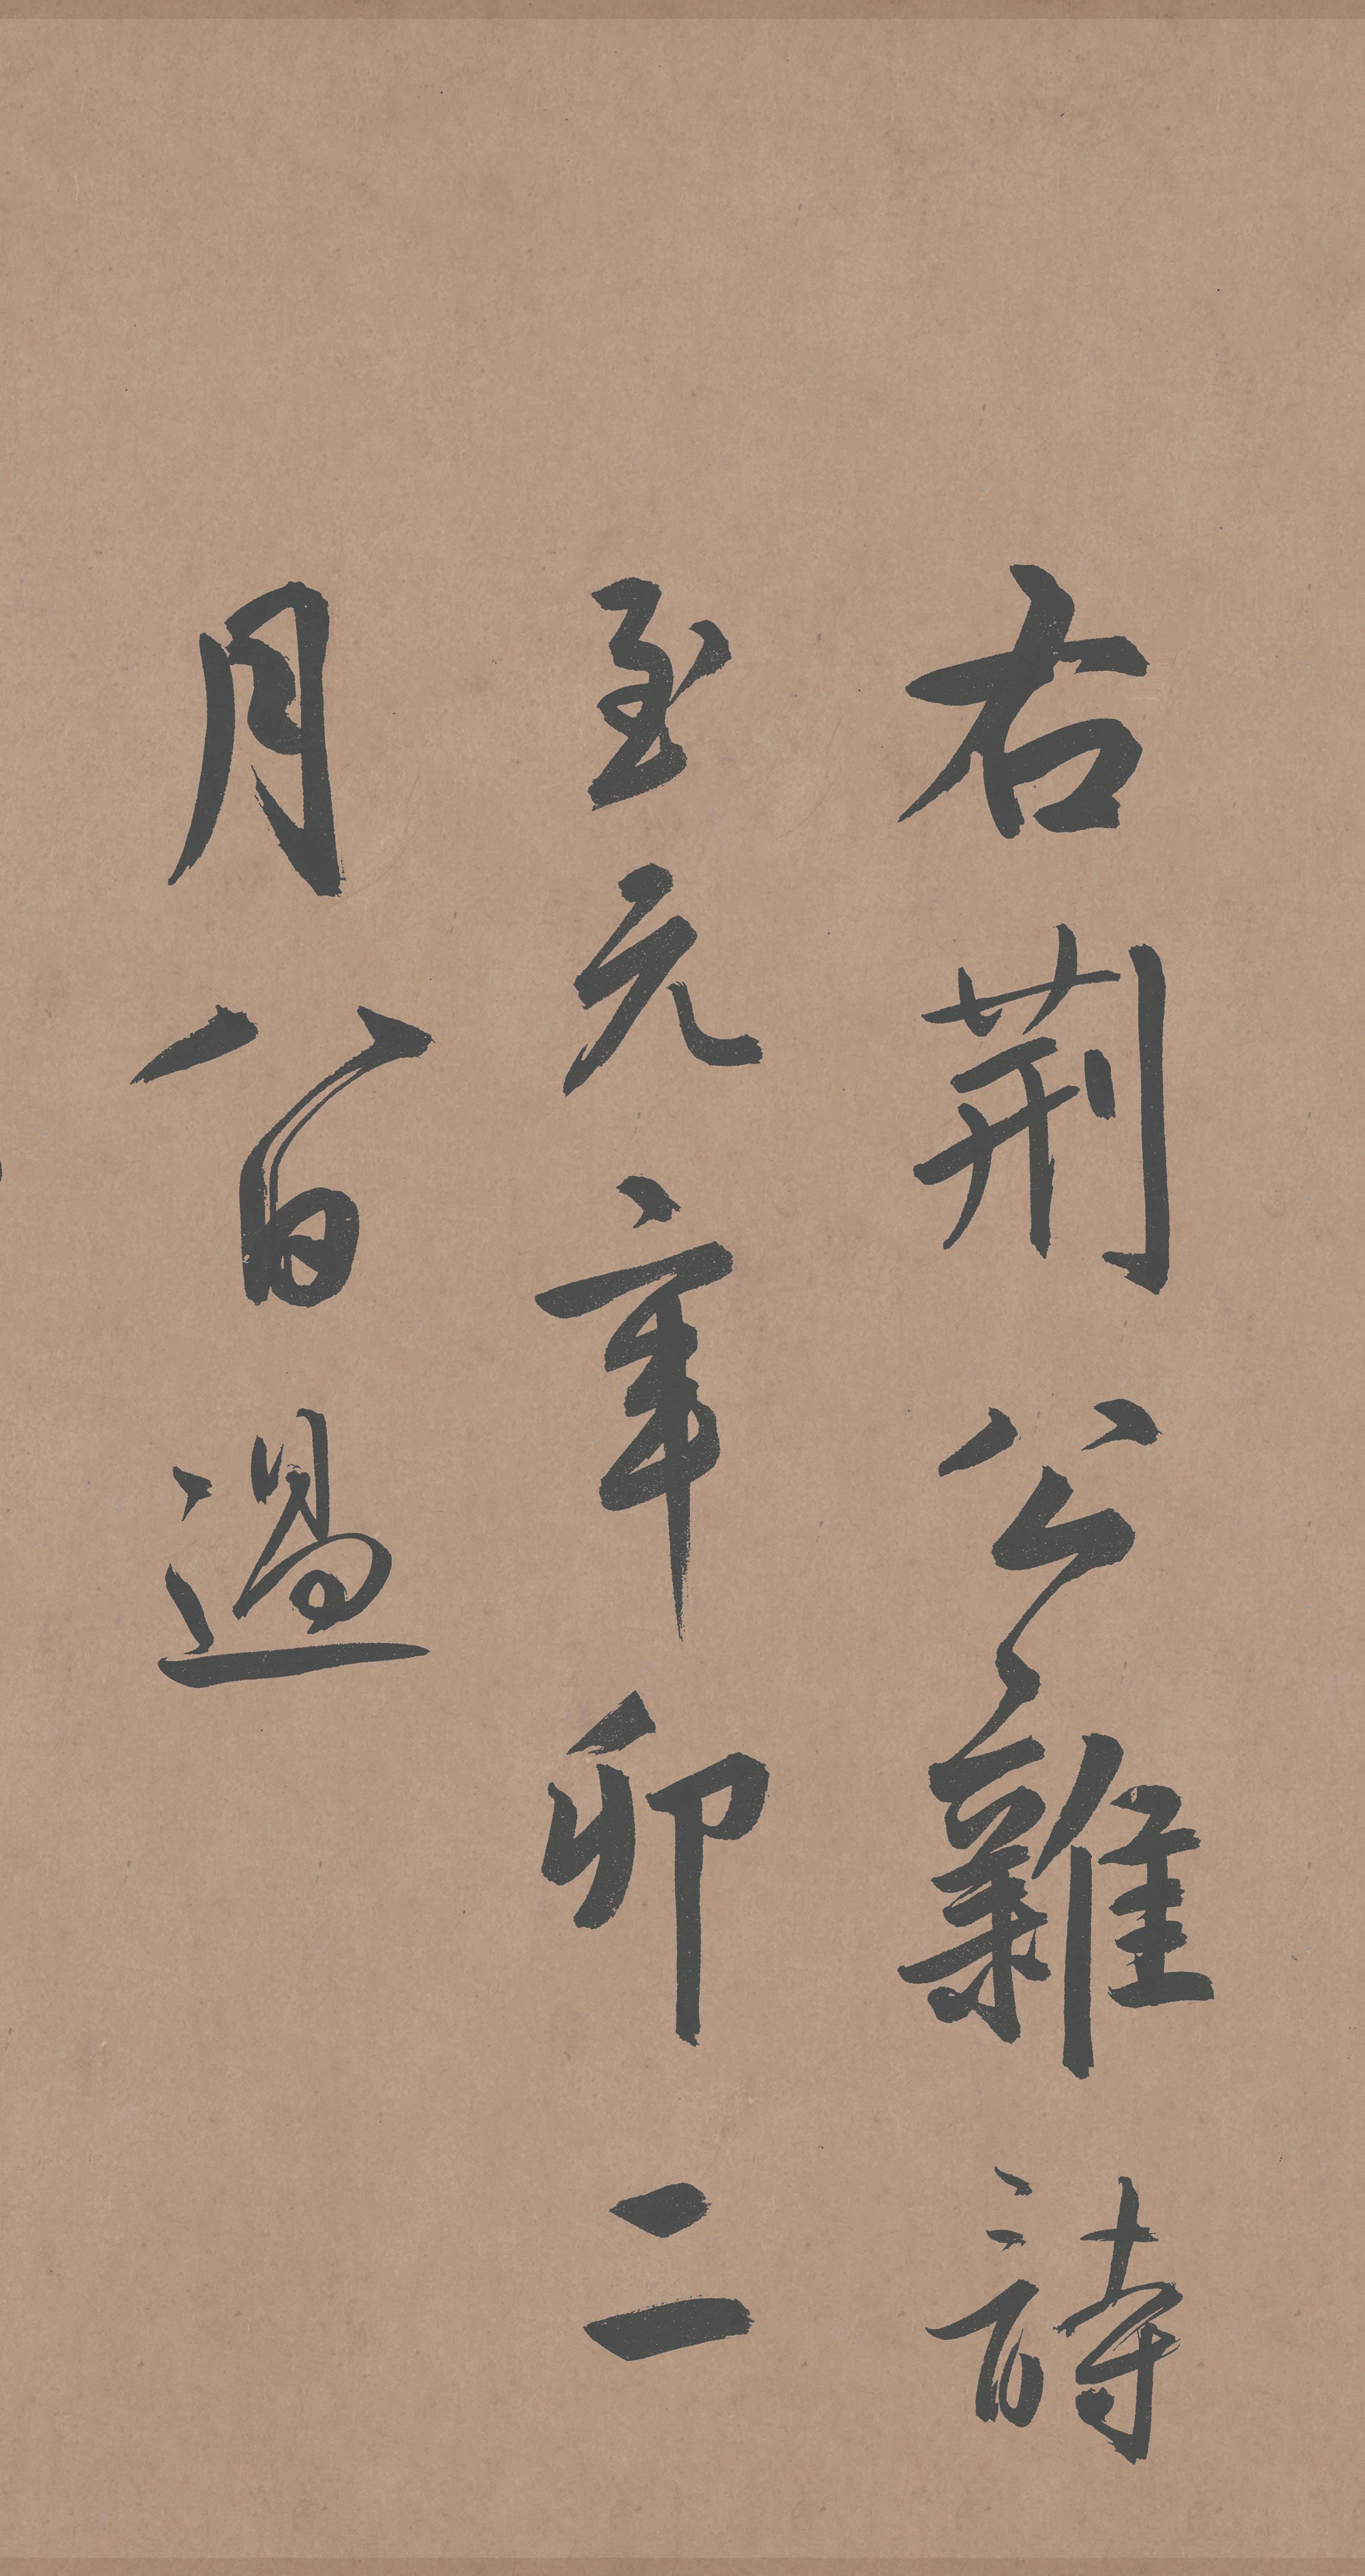 右荆公雜詩
至元辛卯二
月八日過